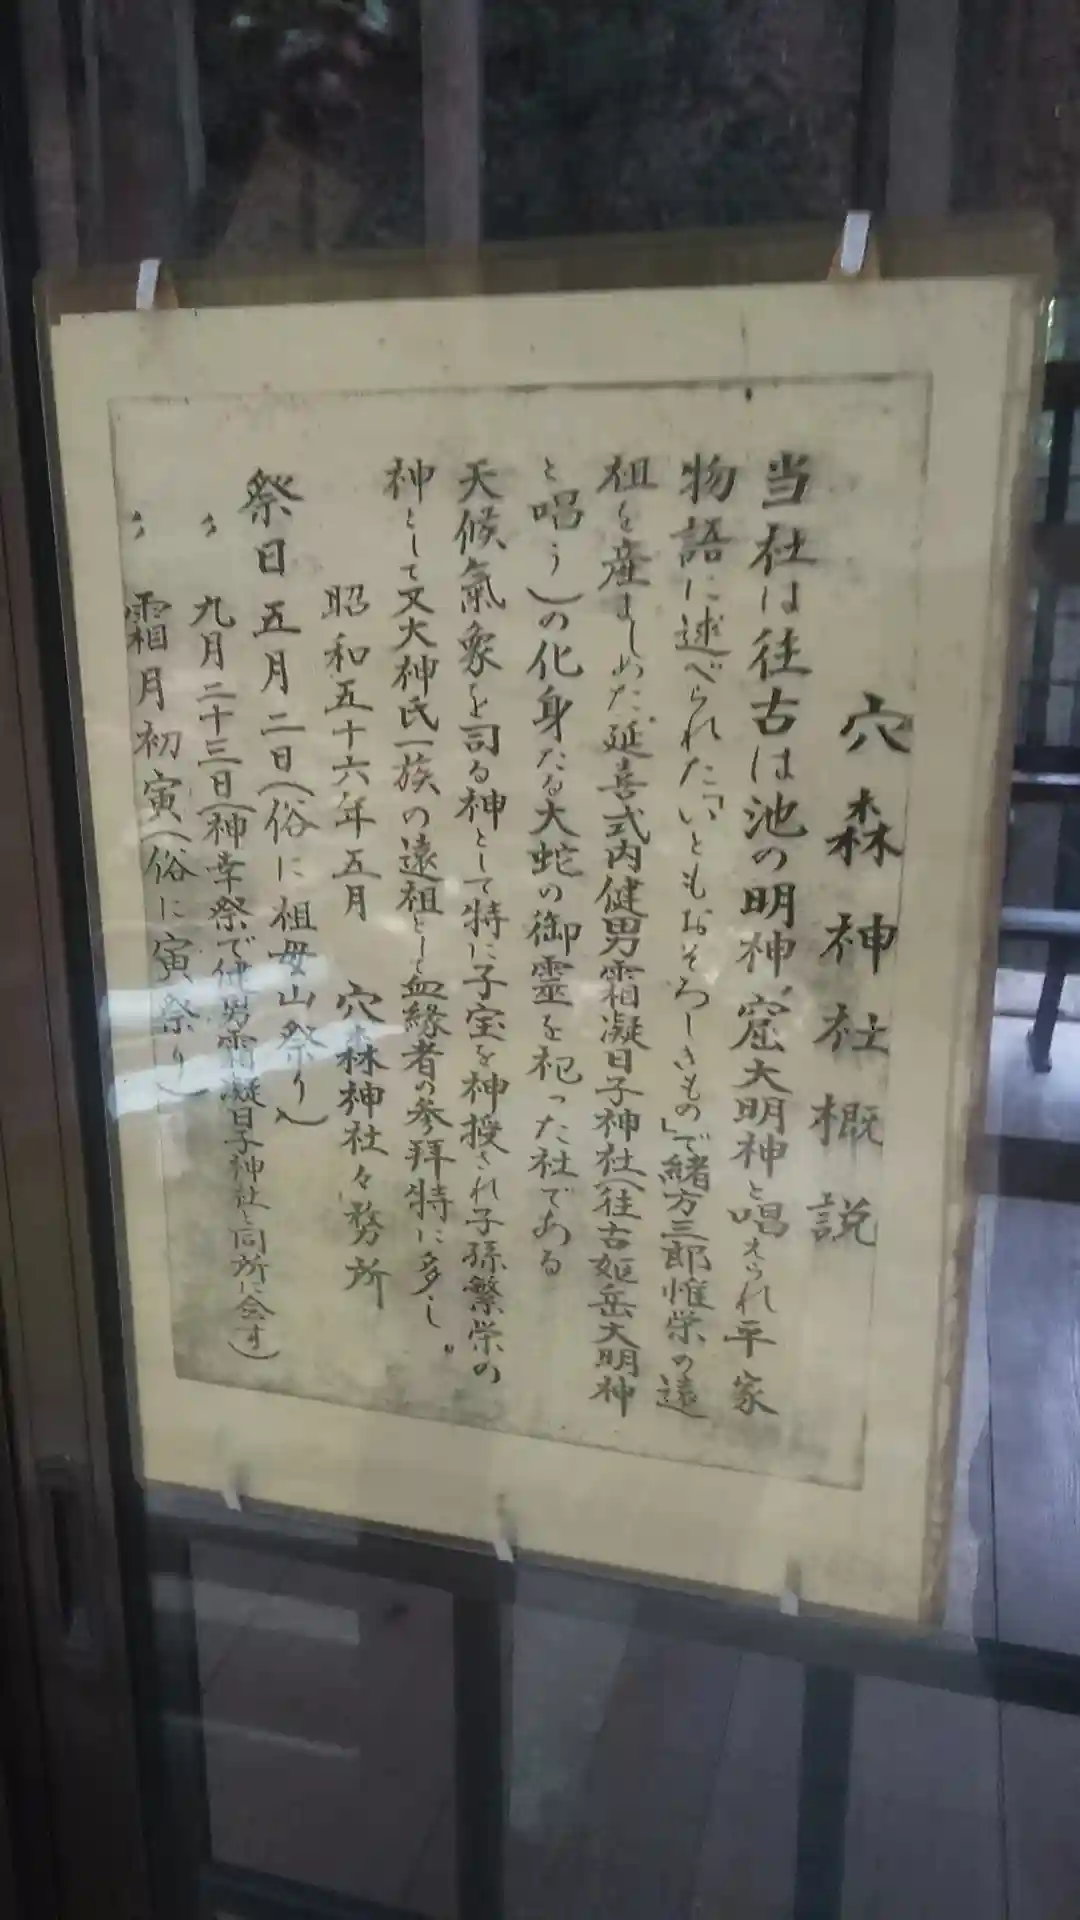 穴森神社概説
当社は往古は池の明神、窟大明神と唱えられ平家
物語に述べられた「いともおそろしきもの」で緒方三郎惟栄の遠
祖を産ましめた延喜式内健男霜凝日子神社(往古姫岳大明神
と唱う)の化身たる大蛇の御霊を祀った社である
天候氣象を司る神として特に子宝を神授され子孫繁栄の
神として又大神氏一族の遠祖とし血縁者の参拝特に多し。
昭和五十六年五月 穴森神社々務所
祭日 五月二日(俗に祖母山祭り)
〃 九月二十三日(神幸祭で健男霜凝日子神社と同所に会す)
〃 霜月初寅(俗に寅祭り)